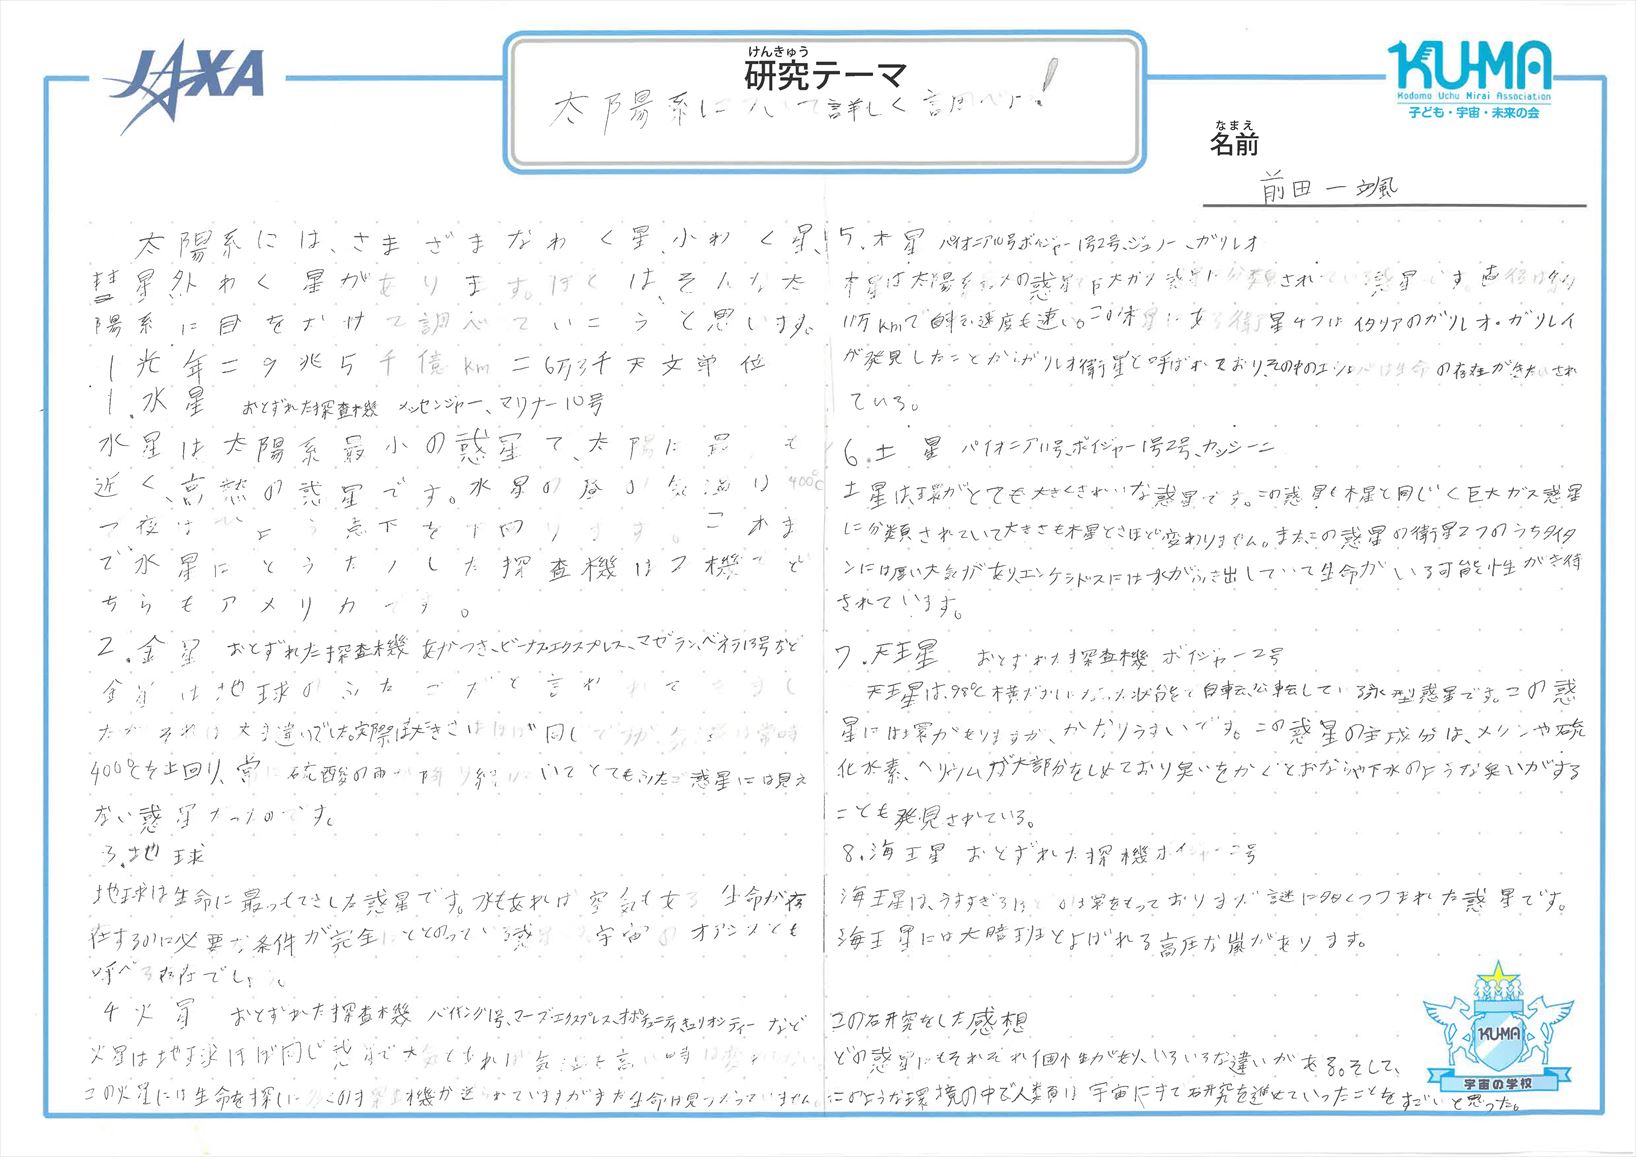 JAXA
けんきゅう
研究テーマ
太陽系について詳しく調べよう!
KU-MA
Kodomo Uchu Mirai Association
子ども・宇宙・未来の会
なまえ
名前
前田一颯
太陽系には、さまざまなわく星、小わく星、
彗星、外わく星があります。ぼくは、そんな太
陽系に目をむけて調べていこうと思います。
1光年=9兆5千億km=6万3千天文単位
1.水星 おとずれた探査機 メッセンジャー、マリナー10号
水星は太陽系最小の惑星で、太陽に最も
近く、高熱の惑星です。水星の昼の気温は400℃
で夜はひょう点下を下回ります。これま
で水星にとうたつした探査機は2機でど
ちらもアメリカです。
2.金星 おとずれた探査機 あかつき、ビーナスエクスプレス、マゼラン、ベネラ13号など
金星は地球のふたごだと言われてきまし
たが、それは大き違いでした。実際は大きさはほぼ同じですが、気温は常時
400℃を上回り、常に硫酸の雨が降り続いていてとてもふたご惑星には見え
ない惑星だったのです。
3.地球
地球は生命に最ってきした惑星です。水もあれば空気もある生命が存
在するのに必要な条件が完全にととのっている惑星、宇宙のオアシスとも
呼べる存在でしょう。
4火星 おとずれた探査機 バイキング1号、マーズエクスプレス、オポチュニティ、キュリオシティーなど
火星は地球ほぼ同じ惑星で大気もあれば気温も高い時は
この火星には生命を探しに多くの探査機が送られていますがまだ生命は見つかっていません。
5.木星 パイオニア10号、ボイジャー1号2号、ジュノー、ガリレオ
木星は太陽系最大の惑星で巨大ガス惑星に分類されている惑星です。直径は約
11万kmで自転速度も速い。この木星にある衛星4つはイタリアのガリレオ・ガリレイ
が発見したことからガリレオ衛星と呼ばれており、その中のエウロパは生命の存在がきたいされ
ている。
6.土星 パイオニア11号、ボイジャー1号2号、カッシーニ
土星は環がとても大きくきれいな惑星です。この惑星も木星と同じく巨大ガス惑星
に分類されていて大きさも木星とさほど変わりません。またこの惑星の衛星2つのうちタイタ
ンには厚い大気があり、エンケラドスには水がふき出していて生命がいる可能性がき待
されています。
7.天王星 おとずれた探査機 ボイジャー2号
天王星は、98℃横だおしになった状態で自転、公転している氷型惑星です。この惑
星には環がありますが、かなりうすいです。この惑星の主成分は、メタンや硫
化水素、ヘリウムが大部分をしめており臭いをかぐとおならや下水のような臭いがする
ことも発見されている。
8.海王星 おとずれた探機ボイジャー二号
海王星は、うすすぎるほどの環をもっておりまだ謎に多くつつまれた惑星です。
海王星には大暗斑とよばれる高圧な嵐があります。
この研究をした感想
どの惑星にもそれぞれ個性があり、いろいろな違いがある。そして、
このような環境の中で人類は宇宙にまで研究を進めていったことをすごいと思った。
KU-MA
宇宙の学校